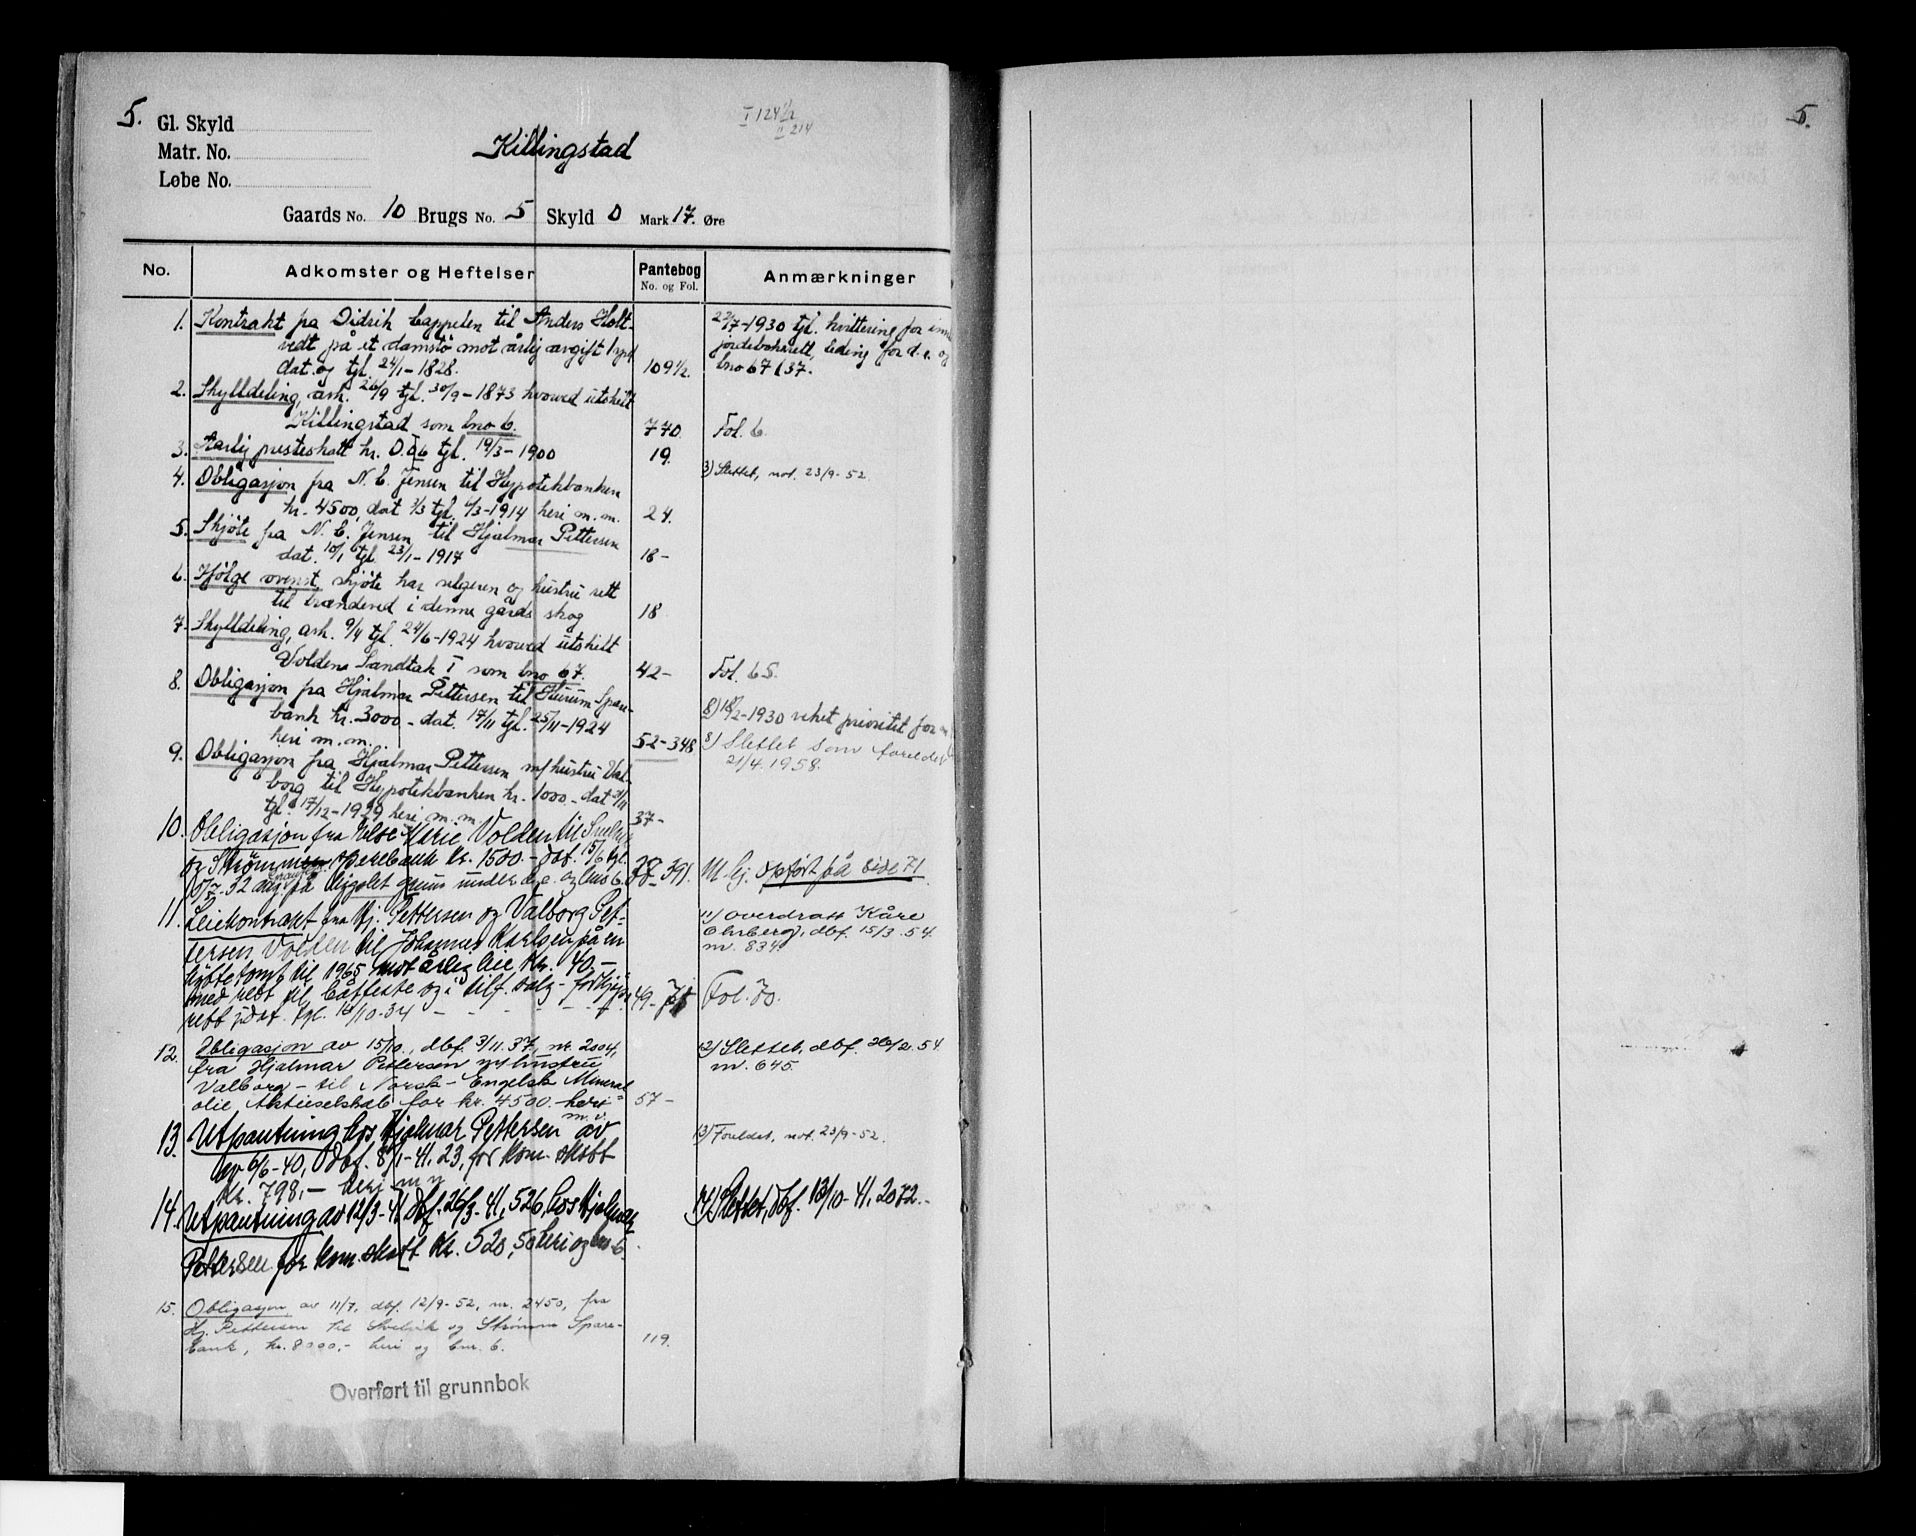 5.
Gl. Skyld
Matr. No.
Løbe No.
I 124 1/2
II 214
Killingstad
Gaards No. 10 Brugs No. 5 Skyld 0 Mark 17. Øre
No. Adkomster og Heftelser Pantebog No. og Fol. Anmærkninger
1. Kontrakt fra Didrik Cappelen til Anders Holt-
vedt på et damstø mot årlig avgift 1 spd
dat. og tjl. 24/1-1828. 109 1/2.
22/7-1930 tjl. kvittering for
jordebokrett, for d. e. og
bno 67 (37.
2. Skylddeling, avh. 26/9 tjl. 30/9-1873 hvorved utskilt
Killingstad som bno 6. 770. Fol. 6.
3. Aarlig presteskatt kr. 0.06 tjl. 19/3-1900 19.
3) Slettet, not. 23/9-52.
4. Obligasjon fra N. C. Jensen til Hypotekbanken
kr. 4500, dat 3/3 tjl. 6/3-1914 heri m. m. 24.
5. Skjøte fra N. C. Jensen til Hjalmar Pettersen
dat. 10/1 tjl. 23/1-1917 18-
6. Ifølge ovenst. skjøte har selgeren og hustru rett
til brændeved i denne gårds skog 18
7. Skylddeling, avh. 9/4 tjl. 24/6-1924 hvorved utskilt
Voldene Sandtak I som bno 67. 42- Fol. 65.
8. Obligasjon fra Hjalmar Pettersen til Hurum Spare-
bank kr. 3000- dat. 17/11 tjl. 25/11-1924
heri m. m. 52-348
8) 18/2-1930 veket prioritet for
8) Slettet som foreldet
21/4.1958.
9. Obligasjon fra Hjalmar Pettersen m/hustru Val-
borg til Hypotekbanken kr. 1000- dat
tjl. 17/12-1929 heri m. m. 37-
10. Obligasjon fra Else Marie Volden til Svelvik
og Strømm Sparebank kr. 1500.- dat. 15/6 tjl.
5/7-32 på bygslet grunn under d.e. og bno 6. 78-391. M. bj. opført på side 71.
11. Leiekontrakt fra Hj. Pettersen og Valborg Pet-
tersen Volden til Johannes Karlsen på en
hyttetomt til 1965 mot årlig leie kr. 40.-
med rett til båtfeste og i tilf. salg - forkjøps
rett dat. tjl. 16/10-34 49-75 Fol. 70.
11) overdratt Kåre
Ehrberg, dbf. 15/3.54.
nr. 834.
12. Obligasjon av 15/10, dbf. 3/11.37, nr. 2004,
fra Hjalmar Pettersen m/hustru
Valborg - til Norsk-Engelsk Mineral
olie Aktieselskab for kr. 4500.- heri 57-
m. v.
12) Slettet, dbf. 26/2.54.
nr. 645.
13. Utpantning hos Hjalmar Pettersen av
av 6/6-40, dbf. 8/1-41, 23, for kom. skatt
kr. 798,- heri m. v.
13) Foreldet, not. 23/9-52.
14. Utpantning av 12/3-41 dbf. 26/3-41, 526, hos Hjalmar
Pettersen for kom. skatt kr. 520,50 heri og bno 6.
14) Slettet, dbf. 13/10-41, 2072.-
15. Obligasjon av 11/7, dbf. 12/9-52, nr. 2450, fra
Hj. Pettersen til Svelvik og Strømm Spare-
bank, kr. 8000,- heri og bnr. 6. 119.
Overført til grunnbok
5.